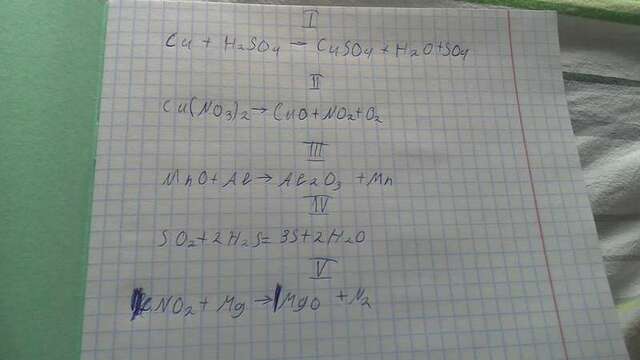 I
Cu + H2SO4 → CuSO4 + H2O + SO4
II
Cu(NO3)2 → CuO + NO2 + O2
III
MnO + Al → Al2O3 + Mn
IV
SO2 + 2H2S = 3S + 2H2O
V
NO2 + Mg → MgO + N2